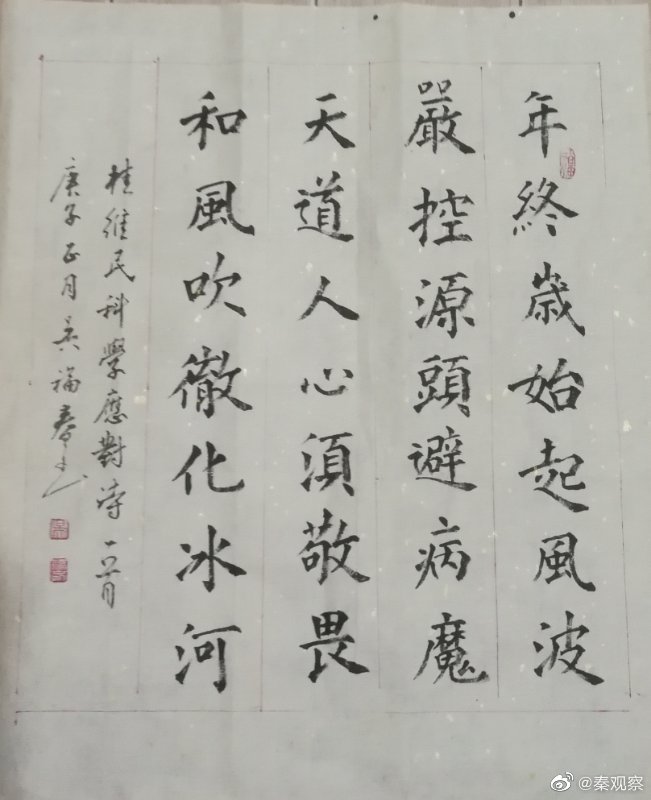 年終歲始起風波
嚴控源頭避病魔
天道人心須敬畏
和風吹徹化冰河
桂維民科學應對诗一首
庚子正月吴福春书
@秦观察